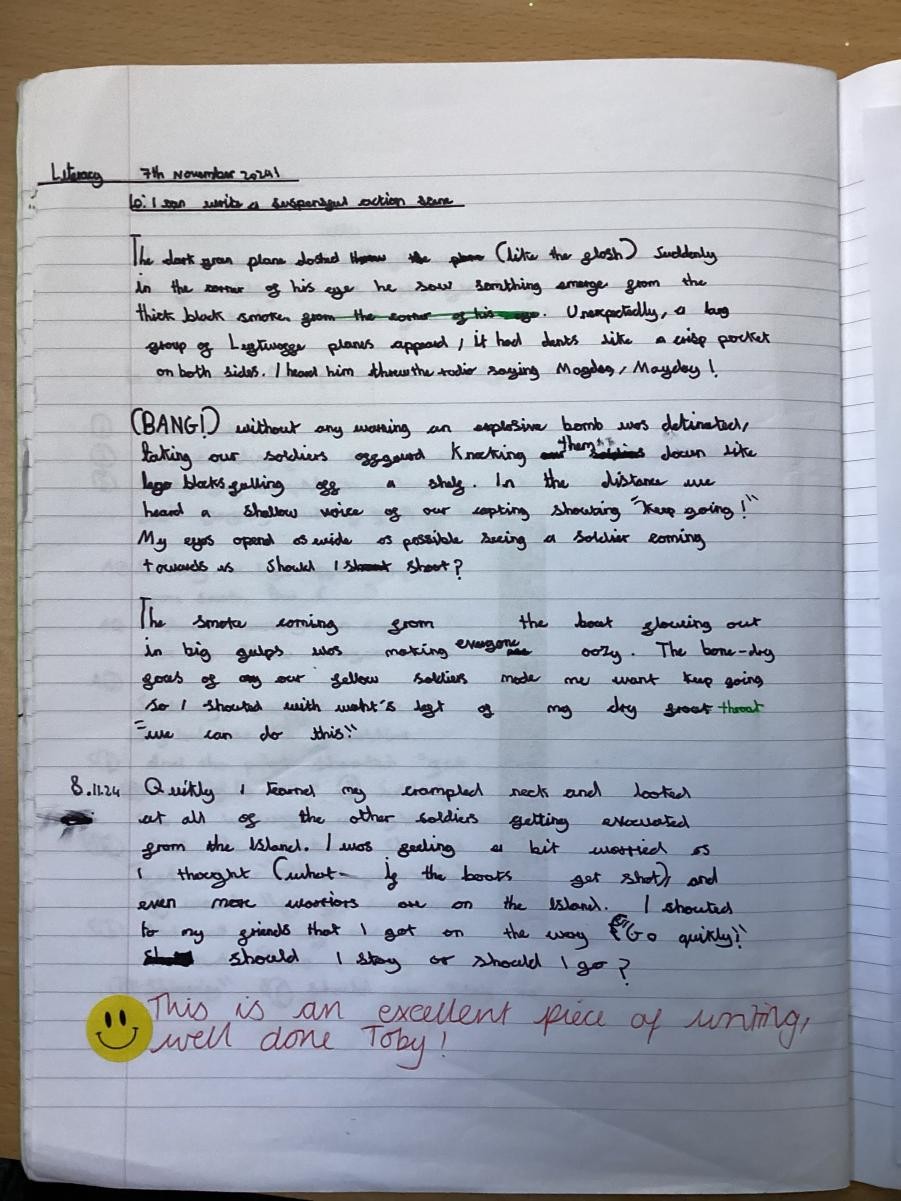 Literacy 7th November 2024!
Lo: I can write a suspensful action scene
The dark green plane dashed the plane (like the flash) Suddenly
in the corner of his eye he saw somthing emerge from the
thick black smoke. from the corner of his eye. Unexpectedly, a larg
group of planes appeard, it had dents like a crisp packet
on both sides. I heard him threw the radio saying Mayday, Mayday!
(BANG!) without any warning an explosive bomb was detinated,
taking our soldiers offguard Knocking them soldiers down like
lego blocks falling off a shelf. In the distance we
heard a shallow voice of our capting showting "Keep going!"
My eyes opend as wide as possible seeing a soldier coming
towards us should I shoot?
The smoke coming from the boat flowing out
in big gulps was making everyone oozy. The bone-dry
faces of our fellow soldiers made me want keep going
so I shouted with waht's left of my dry throat
"we can do this!"
8.11.24 Quikly I tearned my crampled neck and looked
at all of the other soldiers getting evacuated
from the Island. I was feeling a bit worried as
I thought (what-if the boats get shot) and
even more warriors are on the Island. I shouted
to my friends that I got on the way "Go quickly!"
should I stay or should I go?
This is an excellent piece of writing,
well done Toby!